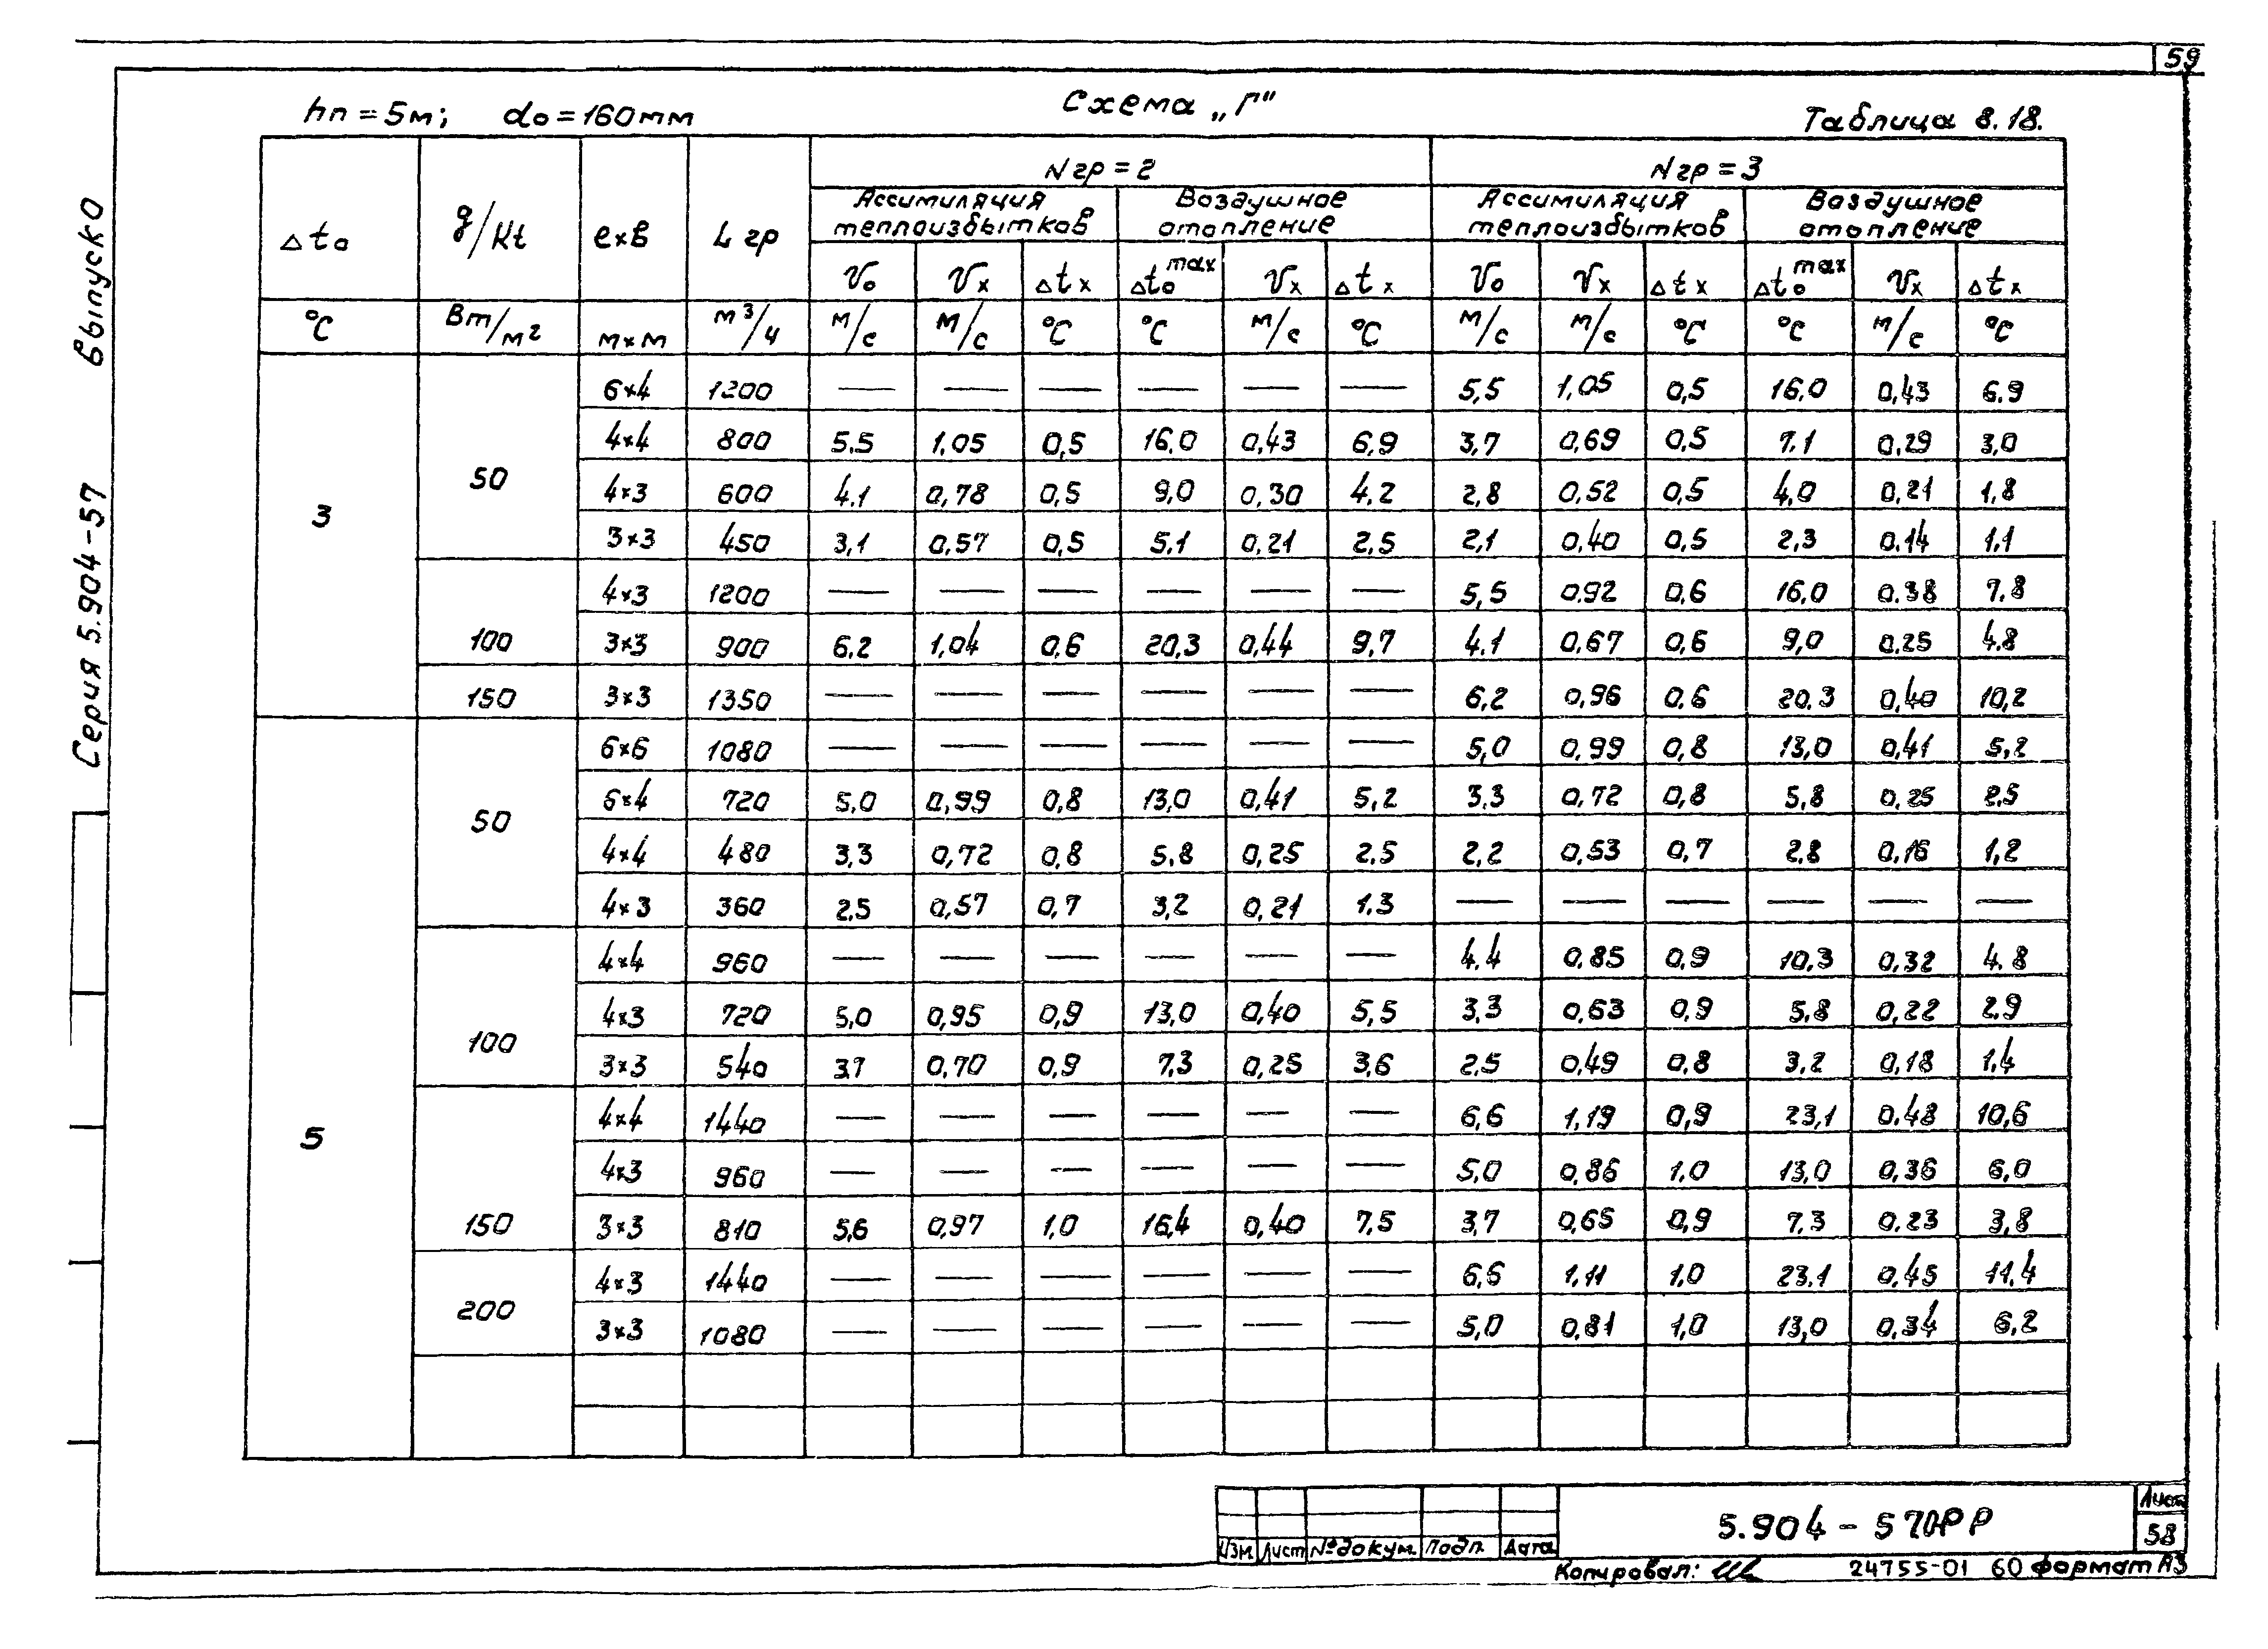 59
hп = 5м; do = 160мм
Схема „Г"
Таблица 8.18.
Δto g/Kt ехв L гр Nгр = 2 Nгр = 3
Ассимиляция теплоизбытков Воздушное отопление Ассимиляция теплоизбытков Воздушное отопление
Vo Vx Δtx Δto max Vx Δtx Vo Vx Δtx Δto max Vx Δtx
°C Вт/м² м×м м³/ч м/с м/с °C °C м/с °C м/с м/с °C °C м/с °C
3 50 6×4 1200 — — — — — — 5,5 1,05 0,5 16,0 0,43 6.9
4×4 800 5.5 1,05 0,5 16,0 0,43 6,9 3,7 0,69 0,5 7.1 0,29 3,0
4×3 600 4.1 0,78 0,5 9,0 0,30 4.2 2,8 0,52 0,5 4,0 0,21 1,8
3×3 450 3,1 0,57 0,5 5.1 0,21 2,5 2,1 0,40 0,5 2,3 0.14 1.1
100 4×3 1200 — — — — — — 5,5 0.92 0,6 16,0 0.38 7.8
3×3 900 6.2 1,04 0,6 20,3 0,44 9,7 4.1 0,67 0,6 9,0 0.25 4.8
150 3×3 1350 — — — — — — 6,2 0,96 0.6 20.3 0,40 10,2
5 50 6×6 1080 — — — — — — 5,0 0,99 0,8 13,0 0,41 5,2
6×4 720 5.0 0,99 0,8 13,0 0,41 5,2 3.3 0,72 0,8 5,8 0,25 2,5
4×4 480 3,3 0,72 0,8 5,8 0,25 2,5 2,2 0,53 0,7 2,8 0,16 1,2
4×3 360 2,5 0,57 0,7 3,2 0,21 1.3 — — — — — —
100 4×4 960 — — — — — — 4.4 0,85 0,9 10,3 0,32 4.8
4×3 720 5,0 0,95 0,9 13,0 0,40 5,5 3.3 0,63 0,9 5.8 0,22 2.9
3×3 540 3.7 0,70 0,9 7.3 0,25 3,6 2,5 0,49 0,8 3,2 0,18 1,4
150 4×4 1440 — — — — — — 6,6 1,19 0,9 23,1 0.48 10,6
4×3 960 — — — — — — 5,0 0,86 1,0 13,0 0,36 6,0
3×3 810 5,6 0,97 1,0 16,4 0,40 7,5 3,7 0,65 0,9 7.3 0.23 3,8
200 4×3 1440 — — — — — — 6,6 1,11 1,0 23.1 0,45 11,4
3×3 1080 — — — — — — 5,0 0,81 1,0 13,0 0,34 6,2
Серия 5.904-57 Выпуск 0
5.904-570РР
Лист
58
Изм. Лист №докум. Подп. Дата
Копировал: 24755-01 60 Формат А3